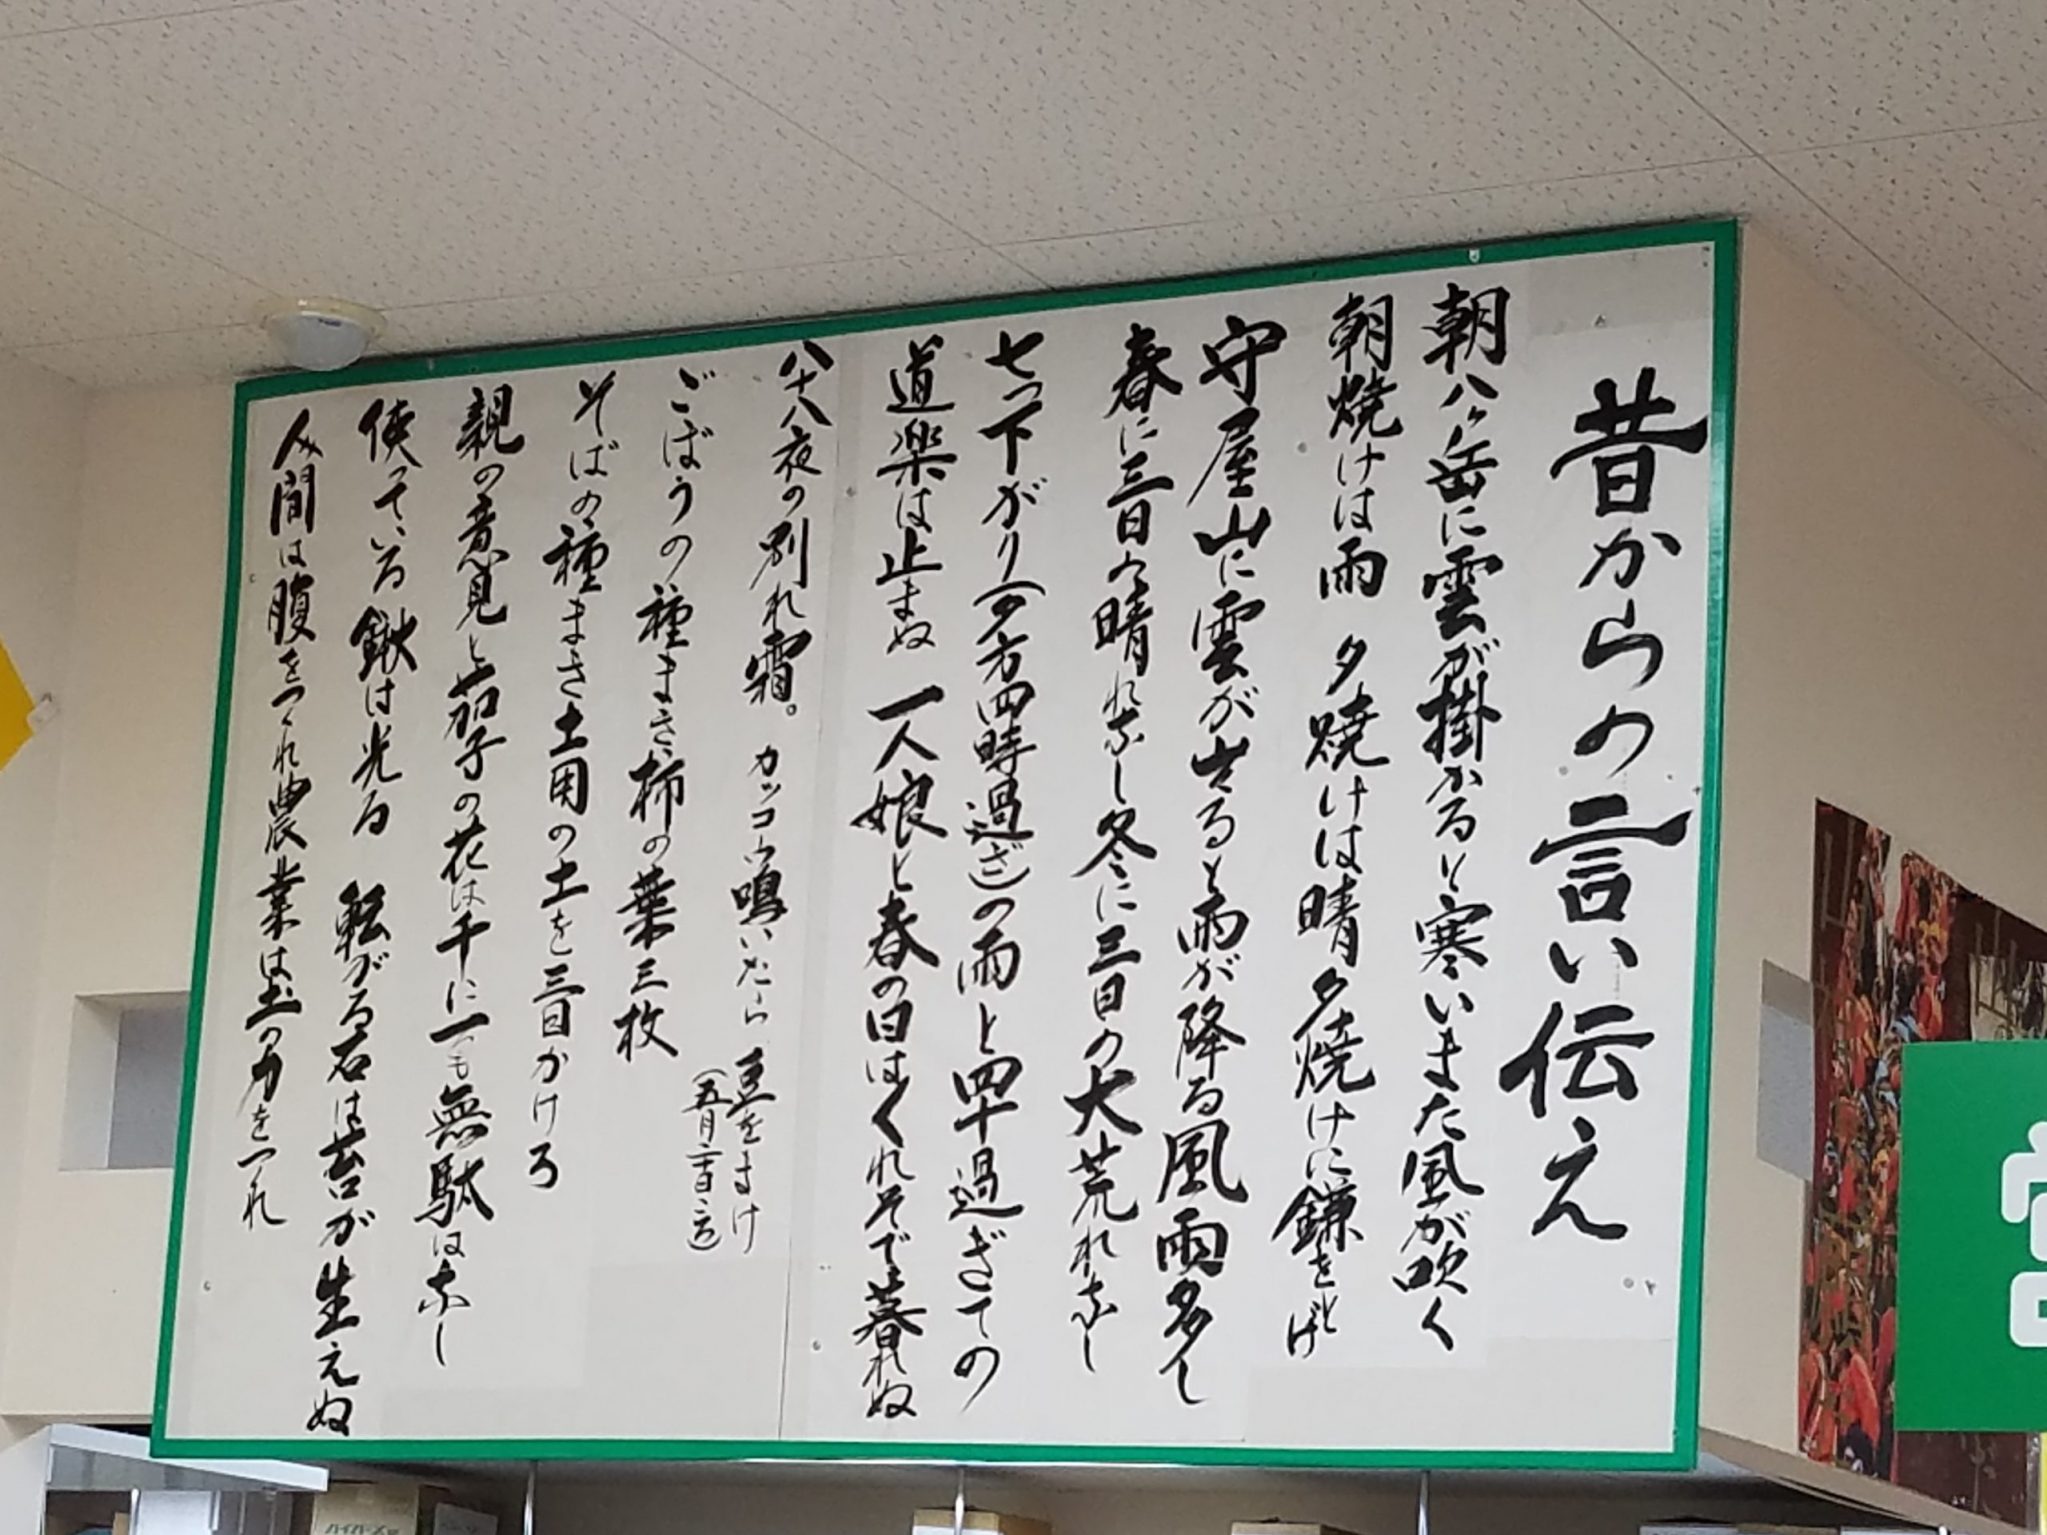 昔からの言い伝え
朝八ヶ岳に雲が掛かると寒いまた風が吹く
朝焼けは雨 夕焼けは晴夕焼けに鎌をとげ
守屋山に雲が出ると雨が降る風雨多し
春に三日の晴れなし冬に三日の大荒れなし
七つ下がり(夕方四時過ぎ)の雨と四十過ぎての
道楽は止まぬ 一人娘と春の日はくれそで暮れぬ
八十八夜の別れ霜。カッコウ鳴いたら豆をまけ
ごぼうの種まき柿の葉三枚
そばの種まき土用の土を三日かけろ
親の意見と茄子の花は千に一つも無駄はなし
使っている鍬は光る 転がる石は苔が生えぬ
人間は腹をつくれ農業は土の力をつくれ